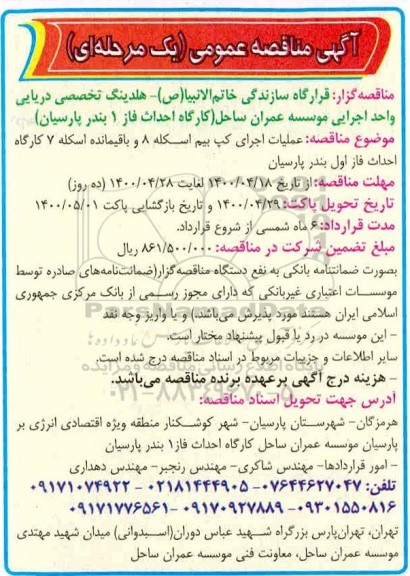 آگهی مناقصه عمومی (یک مرحله‌ای)
مناقصه‌گزار: قرارگاه سازندگی خاتم‌الانبیا(ص)- هلدینگ تخصصی دریایی
واحد اجرایی موسسه عمران ساحل(کارگاه احداث فاز ۱ بندر پارسیان)
موضوع مناقصه: عملیات اجرای کپ بیم اسکله ۸ و باقیمانده اسکله ۷ کارگاه
احداث فاز اول بندر پارسیان
مهلت مناقصه: از تاریخ ۱۴۰۰/۰۴/۱۸ لغایت ۱۴۰۰/۰۴/۲۸ (ده روز)
تاریخ تحویل پاکت: ۱۴۰۰/۰۴/۲۹ و تاریخ بازگشایی پاکت ۱۴۰۰/۰۵/۰۱
مدت قرارداد: ۶ ماه شمسی از شروع قرارداد.
مبلغ تضمین شرکت در مناقصه: ۸۶۱/۵۰۰/۰۰۰ ریال
بصورت ضمانتنامه بانکی به نفع دستگاه مناقصه‌گزار(ضمانت‌نامه‌های صادره توسط
موسسات اعتباری غیربانکی که دارای مجوز رسمی از بانک مرکزی جمهوری
اسلامی ایران هستند مورد پذیرش می‌باشد،) و یا واریز وجه نقد
- این موسسه در رد یا قبول پیشنهاد مختار است.
سایر اطلاعات و جزییات مربوط در اسناد مناقصه درج شده است.
- هزینه درج آگهی برعهده برنده مناقصه می‌باشد.
آدرس جهت تحویل اسناد مناقصه:
هرمزگان- شهرستان پارسیان- شهر کوشکنار منطقه ویژه اقتصادی انرژی بر
پارسیان موسسه عمران ساحل کارگاه احداث فاز۱ بندر پارسیان
- امور قراردادها- مهندس شاکری- مهندس رنجبر- مهندس دهداری
تلفن: ۰۷۶۴۴۶۲۷۰۴۷- ۰۲۱۸۱۴۴۴۹۰۵ - ۰۹۱۷۱۰۷۴۹۲۲
۰۹۳۰۱۵۵۰۸۱۶- ۰۹۱۷۰۹۲۷۸۸۹ -۰۹۱۷۱۷۷۶۵۶۱
تهران، تهران‌پارس بزرگراه شهید عباس دوران(اسبدوانی) میدان شهید مهتدی
موسسه عمران ساحل، معاونت فنی موسسه عمران ساحل